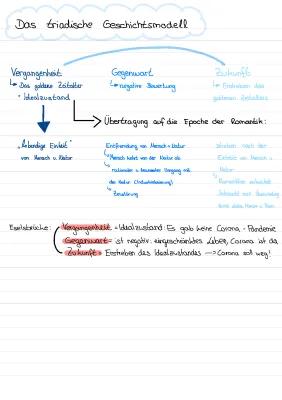 Das triadische Geschichtsmodell
Vergangenheit
↳ Das goldene Zeitalter
+ Idealzustand
Gegenwart
↳ negative Bewertung
Zukunft
↳ Erstreben des
goldenen Zeitalters
Übertragung auf die Epoche der Romantik:
„Lebendige Einheit"
von Mensch u. Natur
Entfremdung von Mensch u. Natur
↳ Mensch kehrt von der Natur ab
rationaler u. bewusster Umgang mit
der Natur (Industrialisierung)
Zerstörung
Streben nach der
Einheit von Mensch u.
Natur
Romantiker
Sehnsucht nach
Eselsbrücke:
Vergangenheit = Idealzustand: Es gab keine Corona-Pandemie
Gegenwart = ist negativ: eingeschränktes Leben, Corona ist da
Zukunft = Erstreben des Idealzustandes → Corona soll weg!